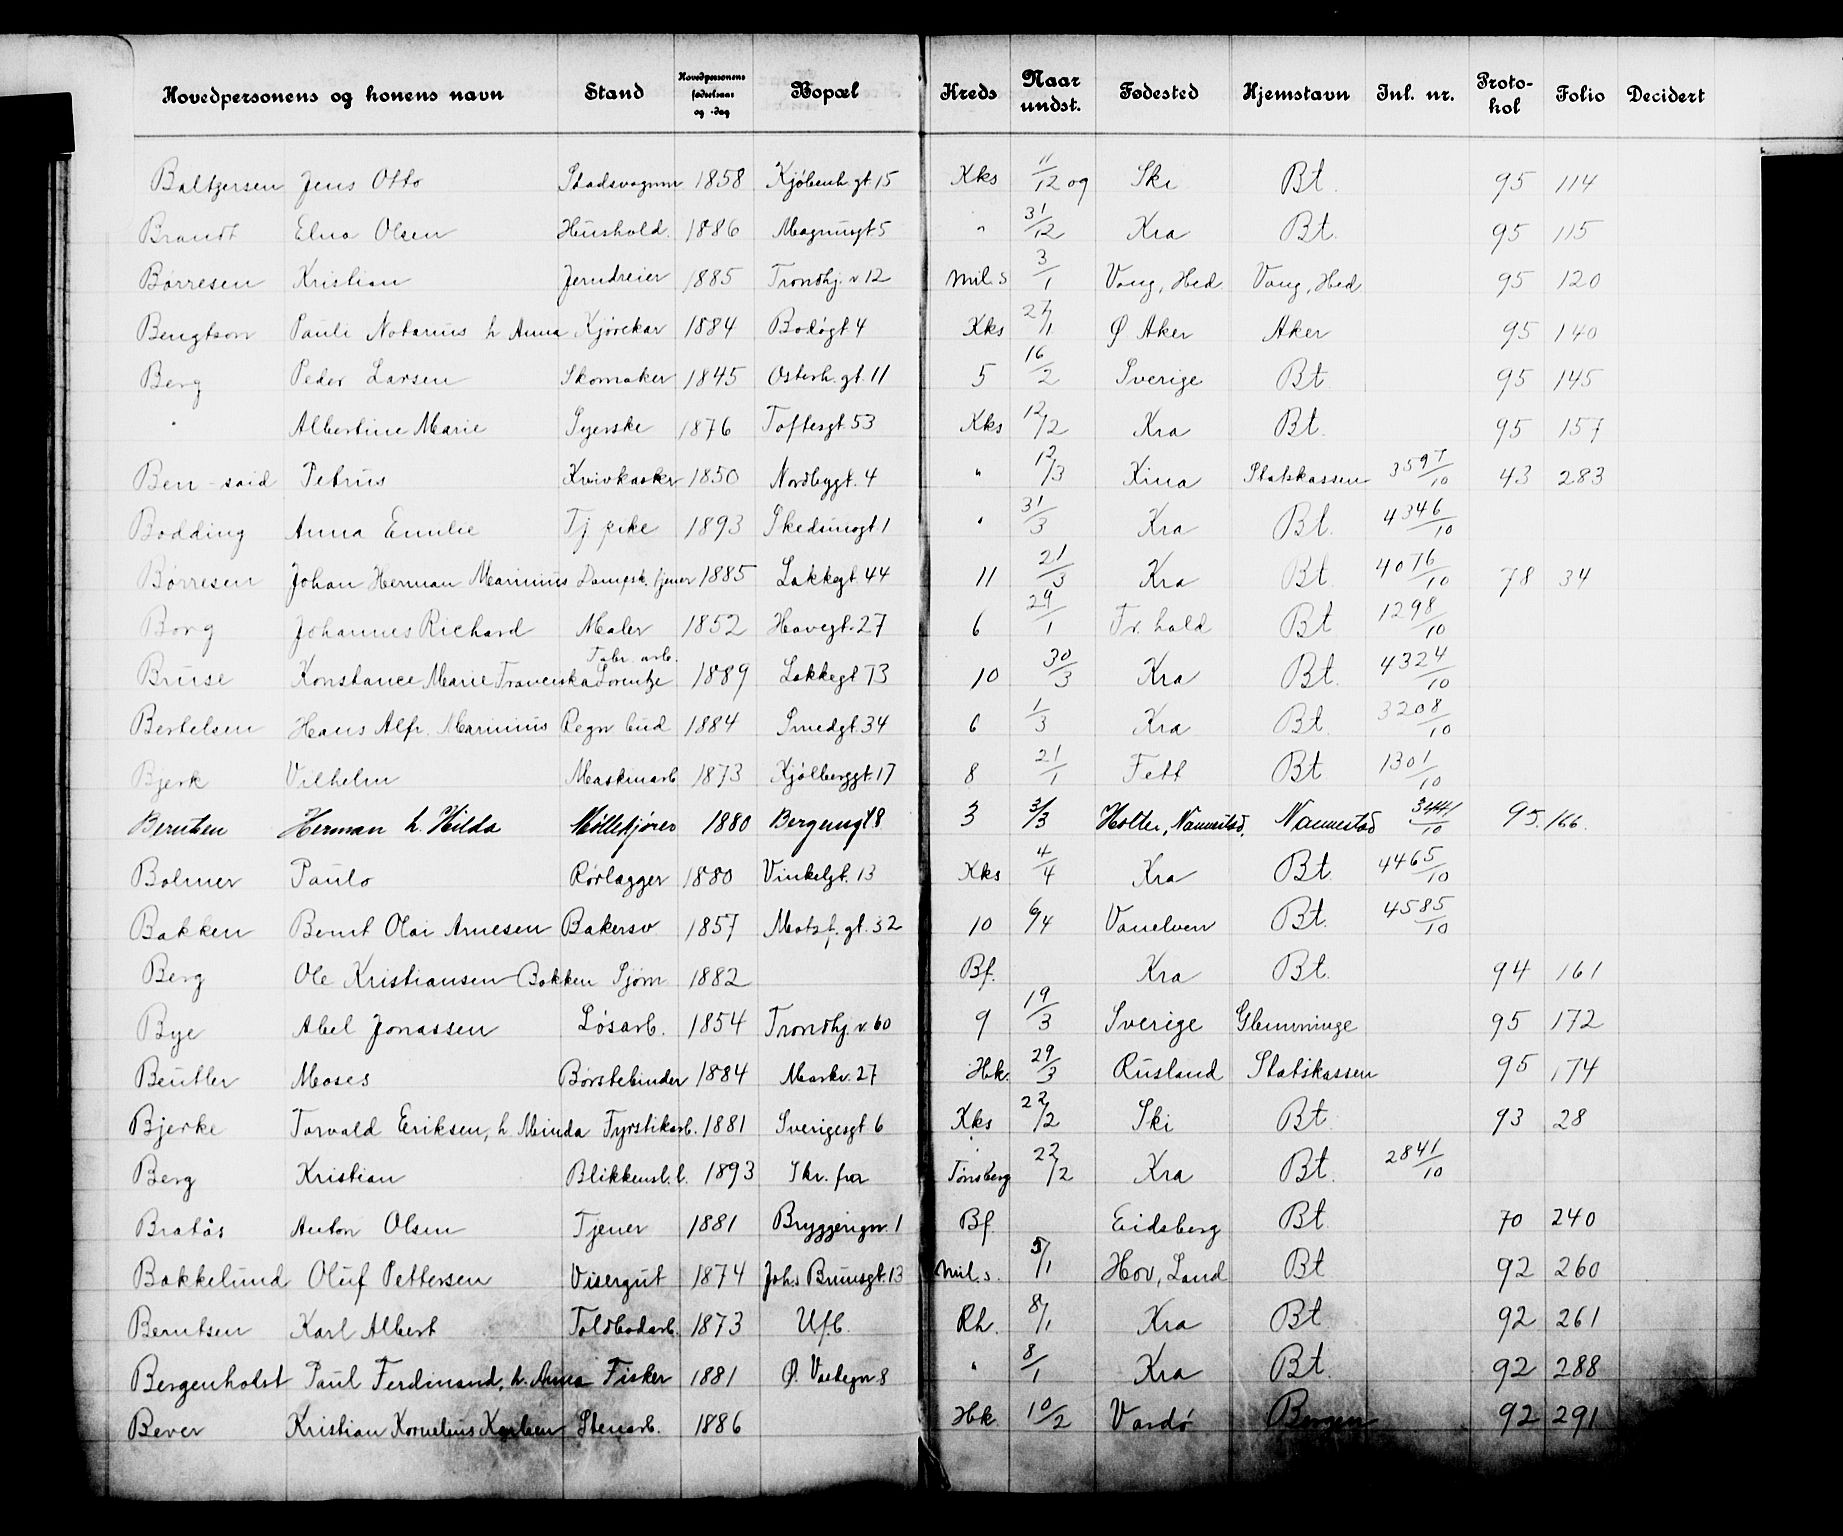 Hovedpersonens og konens navn Stand Hovedpersonens fødselsaar og -dag Bopæl Kreds Naar undst. Fødested Hjemstavn Inl. nr. Protokol Folio Decidert
Baltzersen Jens Otto Stadsvognm 1858 Kjøbenh.gt 15 Kks 11/12 og Ski Bt. 95 114
Brandt Elna Olsen Hushold. 1886 Magnusgt 5 " 31/12 Kra Bt. 95 115
Børresen Kristian Jerndreier 1885 Trondhj.v 12 Mil.s 3/1 Vang, Hed. Vang, Hed 95 120
Bengtson Pauli Notarius h Anna Kjørekar 1884 Bodøgt 4 Kks 27/1 Ø Aker Aker 95 140
Berg Peder Larsen Skomaker 1845 Osterh.gt. 11 5 16/2 Sverige Bt. 95 145
" Albertine Marie Syerske 1876 Toftesgt. 53 Kks 12/2 Kra Bt. 95 157
Ben-said Petrus 1850 Nordbygt. 4 " 12/3 Kina Statskassen 3597/10 43 283
Bodding Anna Emilie Tj pike 1893 Skedsmogt 1 " 31/3 Kra Bt. 4346/10
Børresen Johan Herman Marinius Dampsk. tjener 1885 Lakkegt 44 11 21/3 Kra Bt. 4076/10 78 34
Borg Johannes Richard Maler 1852 Havegt. 27 6 29/1 Fr. hald Bt 1298/10
Bruse Konstance Marie Franciska Lorentze Fabr. arb. 1889 Lakkegt 73 10 30/3 Kra Bt. 4324/10
Bertelsen Hans Alfr. Marinius Regn bud 1884 Smedgt. 34 6 1/3 Kra Bt. 3208/10
Bjerk Vilhelm Maskinarb 1873 Kjølberggt. 17 8 21/1 Fett Bt 1301/10
Berntsen Herman h. Hilda Møllekjører 1880 Bergensgt 8 3 3/3 Holter, Nannestad. Nannestad 95. 166.
Bolmer Paulo Rørlægger 1880 Vinkelgt. 13 Kks 4/4 Kra Bt. 4465/10
Bakken Bernt Olai Arnesen Bakersv 1857 Motzf.gt. 32 10 6/4 Vanelven Bt. 4585/10
Berg Ole Kristiansen Bakken Sjøm 1882 Bf. Kra Bt. 94 161
Bye Abel Jonassen Løsarb. 1854 Trondhj.v. 60 9 19/3 Sverige Glemminge 95 172
Beutler Moses Børstebinder 1884 Markv. 27 Hk. 29/3 Rusland Statskassen 95 174
Bjerke Torvald Eriksen, h. Minda Fyrstikarb. 1881 Sverigesgt 6 Kks 22/2 Ski Bt. 93 28
Berg Kristian Blikkensl. l. 1893 Skr. fra Tønsberg 22/2 Kra Bt. 2841/10
Bratås Anton Olsen Tjener 1881 Bryggerign. 1 Bf. Eidsberg Bt. 70 240
Bakkelund Oluf Pettersen Visergut 1874 Johs Brunsgt. 13 Mil.s. 5/1 Hov, Land Bt 92 260
Berntsen Karl Albert Toldbodarb. 1873 Ufb. Rh. 8/1 Kra Bt 92 261
Bergenholst Paul Ferdinand, h. Anna Fisker 1881 Ø. Vaskegn 8 " 8/1 Kra Bt. 92 288
Bever Kristian Kornelius Karlsen Stenarb. 1886 Hk. 10/2 Vardø Bergen 92 291